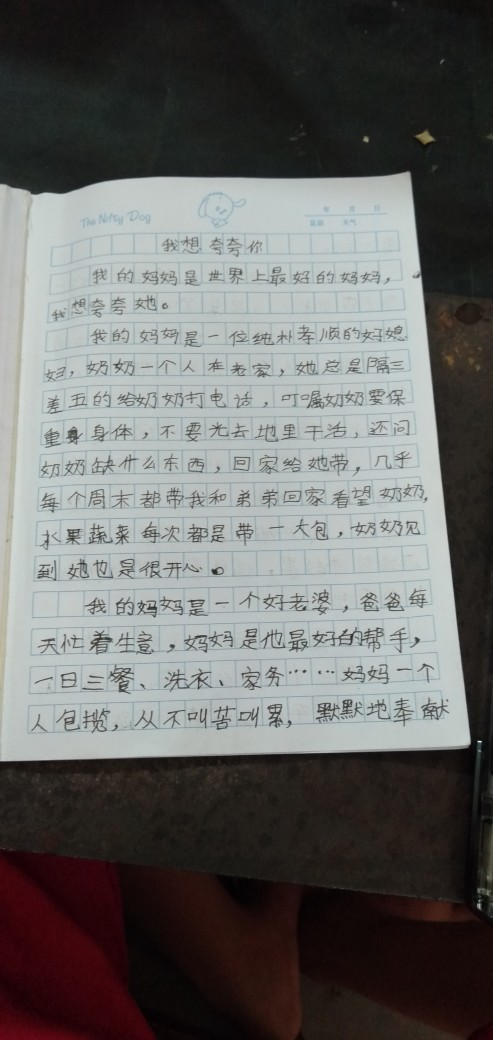 The Nifty Dog
年 月 日
星期 天气
我想夸夸你
我的妈妈是世界上最好的妈妈，
我想夸夸她。
我的妈妈是一位纯朴孝顺的好媳
妇，奶奶一个人在老家，她总是隔三
差五的给奶奶打电话，叮嘱奶奶要保
重身身体，不要光去地里干活，还问
奶奶缺什么东西，回家给她带，几乎
每个周末都带我和弟弟回家看望奶奶，
水果蔬菜每次都是带一大包，奶奶见
到她也是很开心。
我的妈妈是一个好老婆，爸爸每
天忙着生意，妈妈是他最好的帮手，
一日三餐、洗衣、家务……妈妈一个
人包揽，从不叫苦叫累，默默地奉献